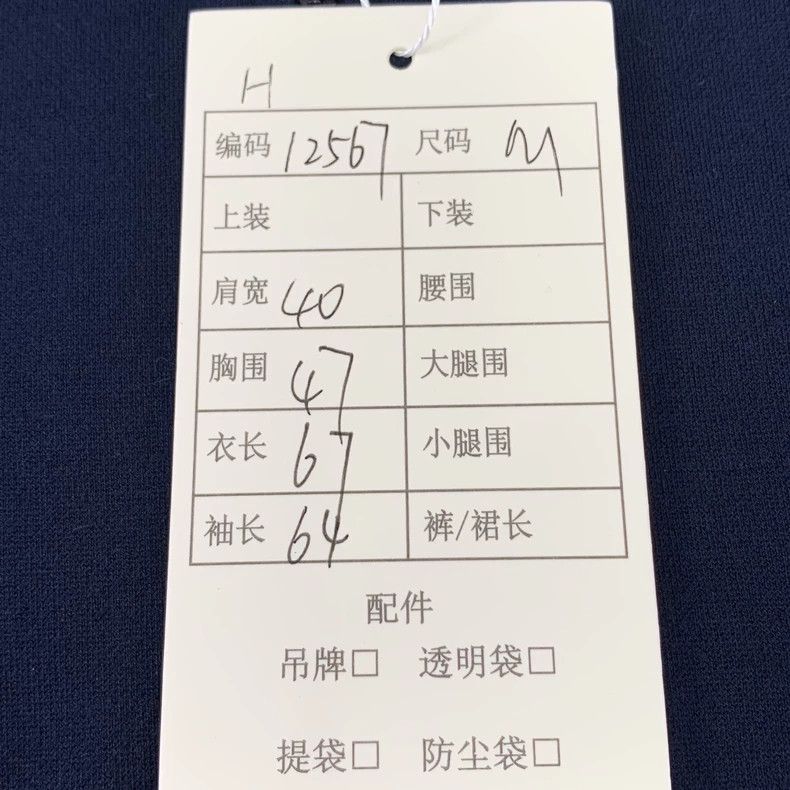 H
编码 12567 尺码 M
上装 下装
肩宽 40 腰围
胸围 47 大腿围
衣长 67 小腿围
袖长 64 裤/裙长
配件
吊牌□ 透明袋□
提袋□ 防尘袋□